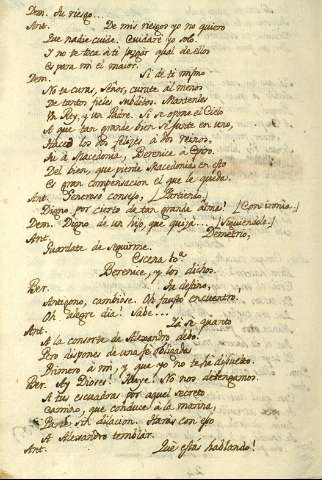 Dem. Su riesgo....
Ant. De mis riesgos yo no quiero
Que nadie cuide. Cuidaré yo solo.
Y no te toca á ti juzgar qual de ellos
Es para mi el maior.
Dem. Si de ti mismo
No te curas, Señor, curate al menos
De tantos fieles subditos. Mantenles
Un Rey, y un Padre. Si se opone el Cielo
A que tan grande bien se junte en uno,
Haced los dos felizes á dos reinos,
Tu á Macedonia, Berenice á Epiro.
Del bien, que pierde Macedonia en esto
Es gran compensacion el que le queda.
Ant. Generoso consejo, [Partiendo]
Digno por cierto de tan grande alma! [Con ironia.]
Dem. Digno de un hijo, que quizá.... [Siguiendolo.]
Ant. Demetrio,
Guardate de seguirme.
Escena 10.a
Berenice, y los dichos.
Ber. Tu destino,
Antigono, cambiose. Oh fausto encuentro.
Oh alegre dia! Sabe...
Ant. Ya se quanto
A la consorte de Alexandro debo.
Pero dispones de una fé obligada
Primero á mi, y que yo no te he disuelto.
Ber. Ay Dioses! Huye! No nos detengamos.
A tus escuadras por aquel secreto
Camino, que conduce á la marina,
Parte sin dilacion. Harás con eso
A Alessandro temblar.
Ant. Que estás hablando!